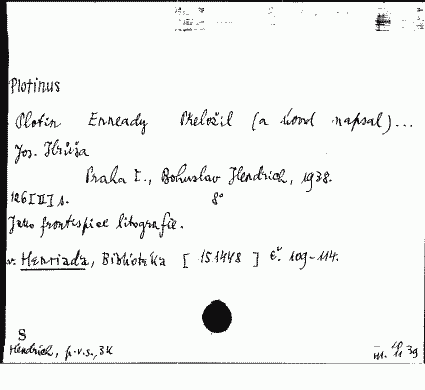 Plotinus
Plotin Enneady Přeložil (a úvod napsal)...
Jos. Hrůša
Praha I., Bohuslav Hendrich, 1938.
126 [II] s. 8°
Jako frontispice litografie.
v. Henriada, Bibliotéka [ 151448 ] č. 109-114.
S
Hendrich, p.v.s., 3K
39